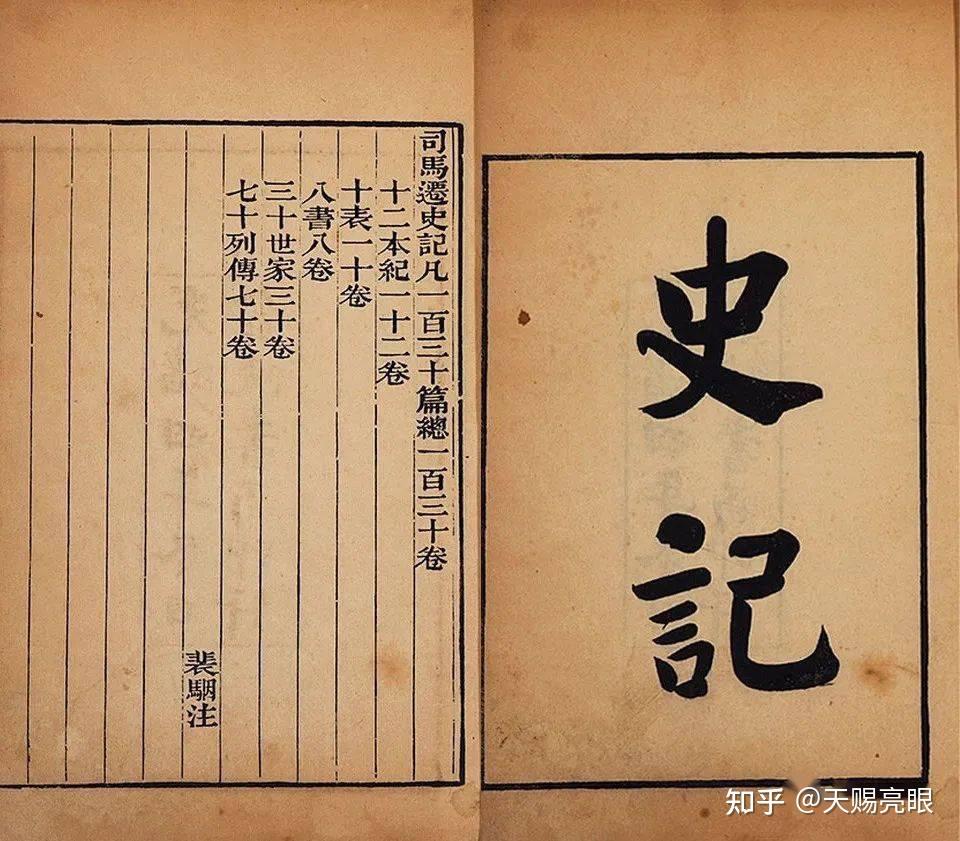 史記
司馬遷史記凡一百三十篇總一百三十卷
十二本紀一十二卷
十表一十卷
八書八卷
三十世家三十卷
七十列傳七十卷
裴駰注
知乎 @天赐亮眼